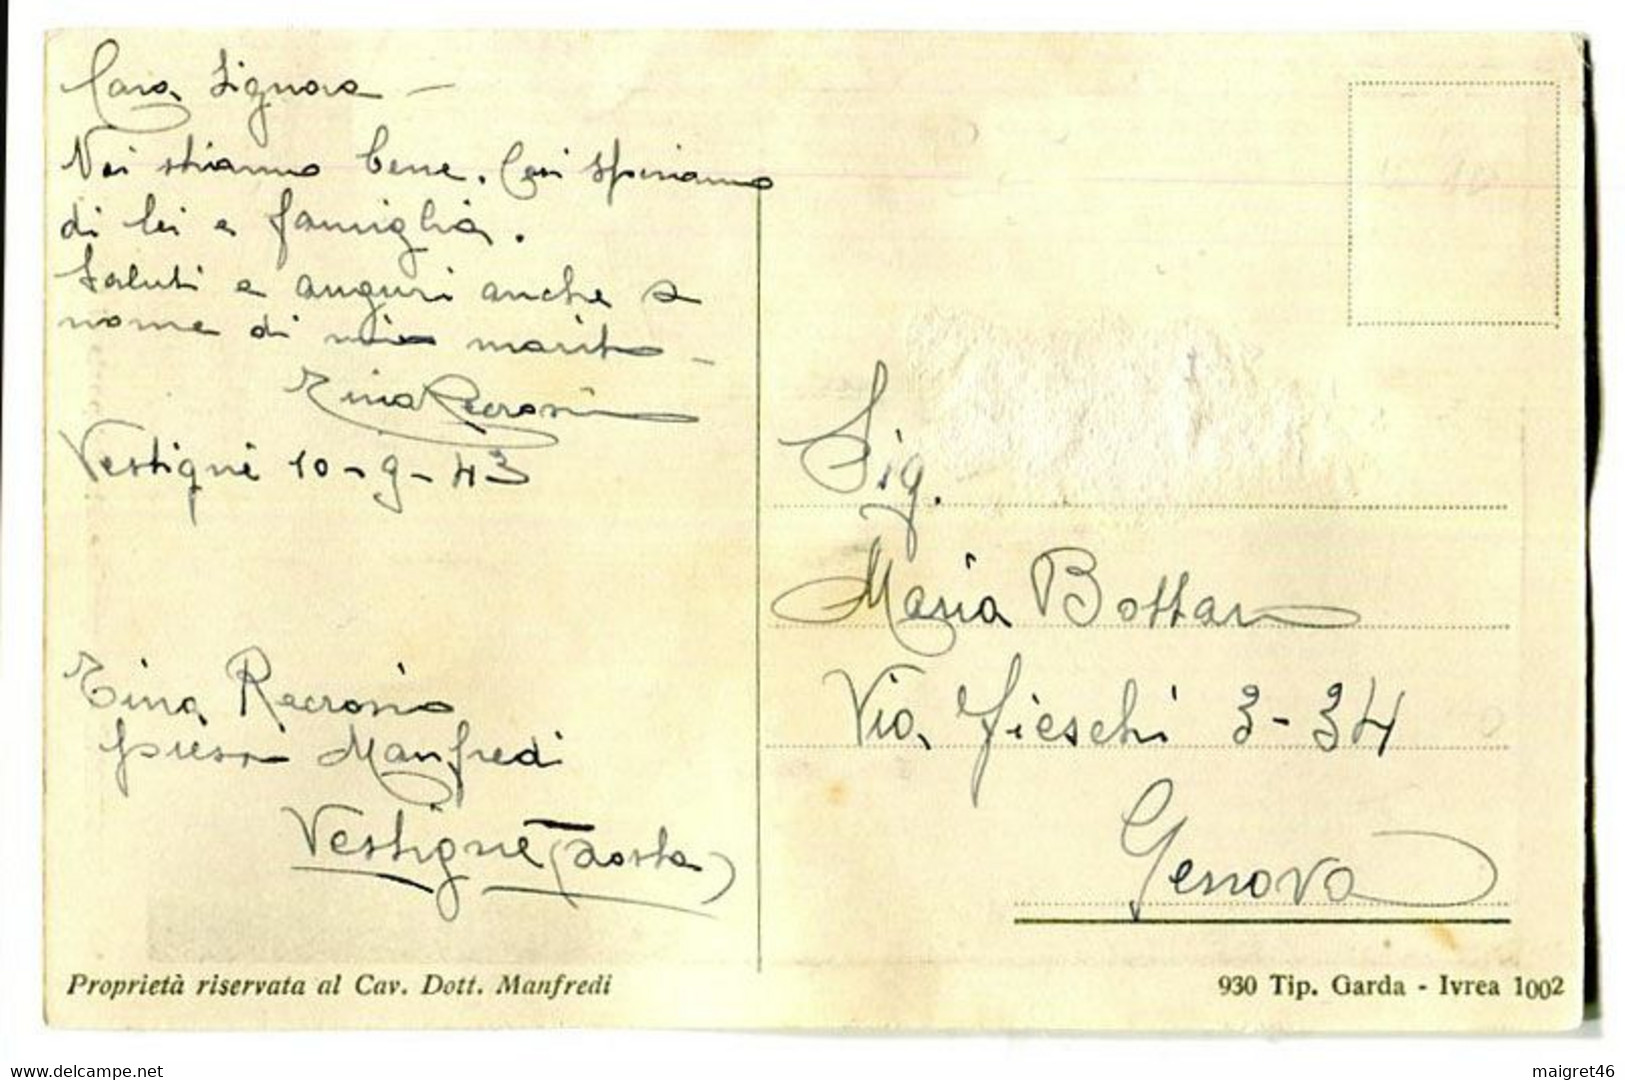 Cara Signora -
Noi stiamo bene. Così speriamo
di lei e famiglia.
Saluti e auguri anche a
nome di mio marito -
Tina Recrosio
Vestigné 10-9-43
Tina Recrosio
presso Manfredi
Vestigné (Aosta)
Proprietà riservata al Cav. Dott. Manfredi
Sig.
Maria Bottan
Via Fieschi 3-34
Genova
930 Tip. Garda - Ivrea 1002
maigret46